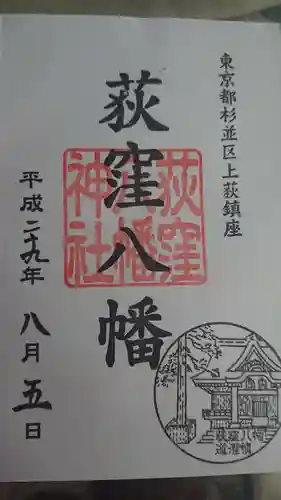 東京都杉並区上荻鎮座
荻窪八幡
荻窪
八幡
神社
平成二十九年 八月五日